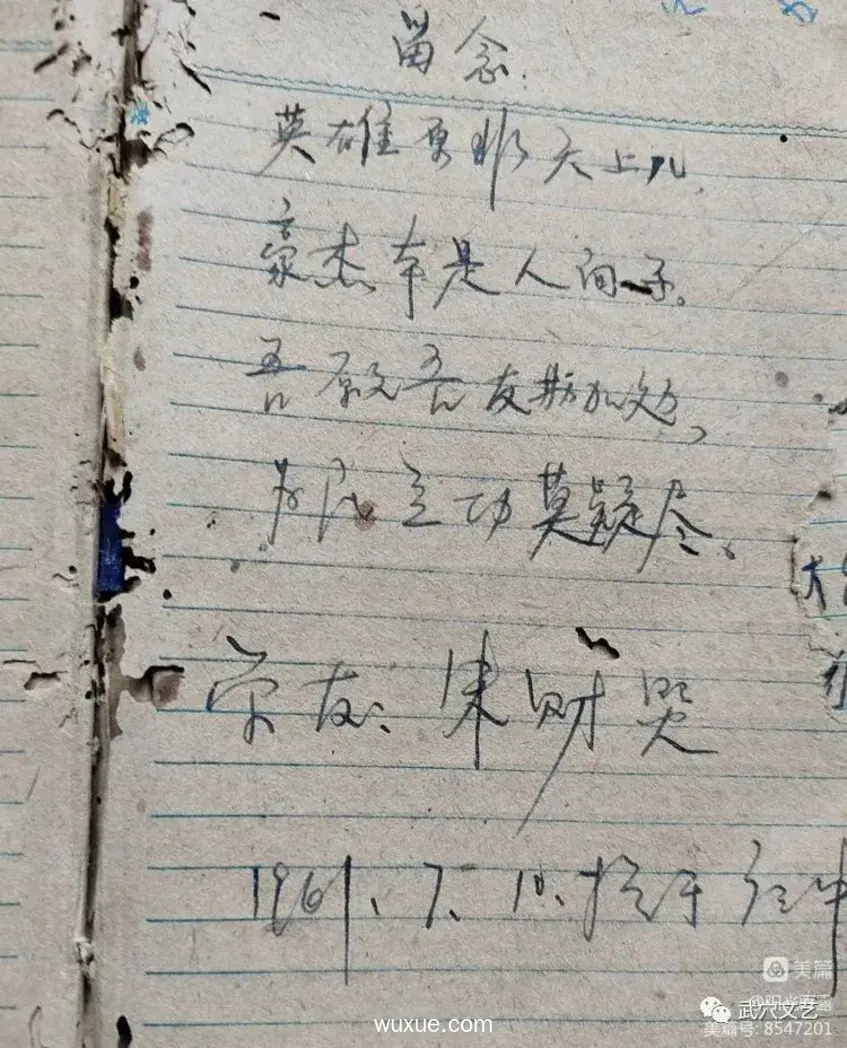 留念.
英雄原非天上儿,
豪杰本是人间子。
吾愿吾友努加劲,
为民立功莫疑尽。
学友: 朱财哭
1961.7.10.于
美篇
武穴文艺
美篇号: 8547201
wuxue.com